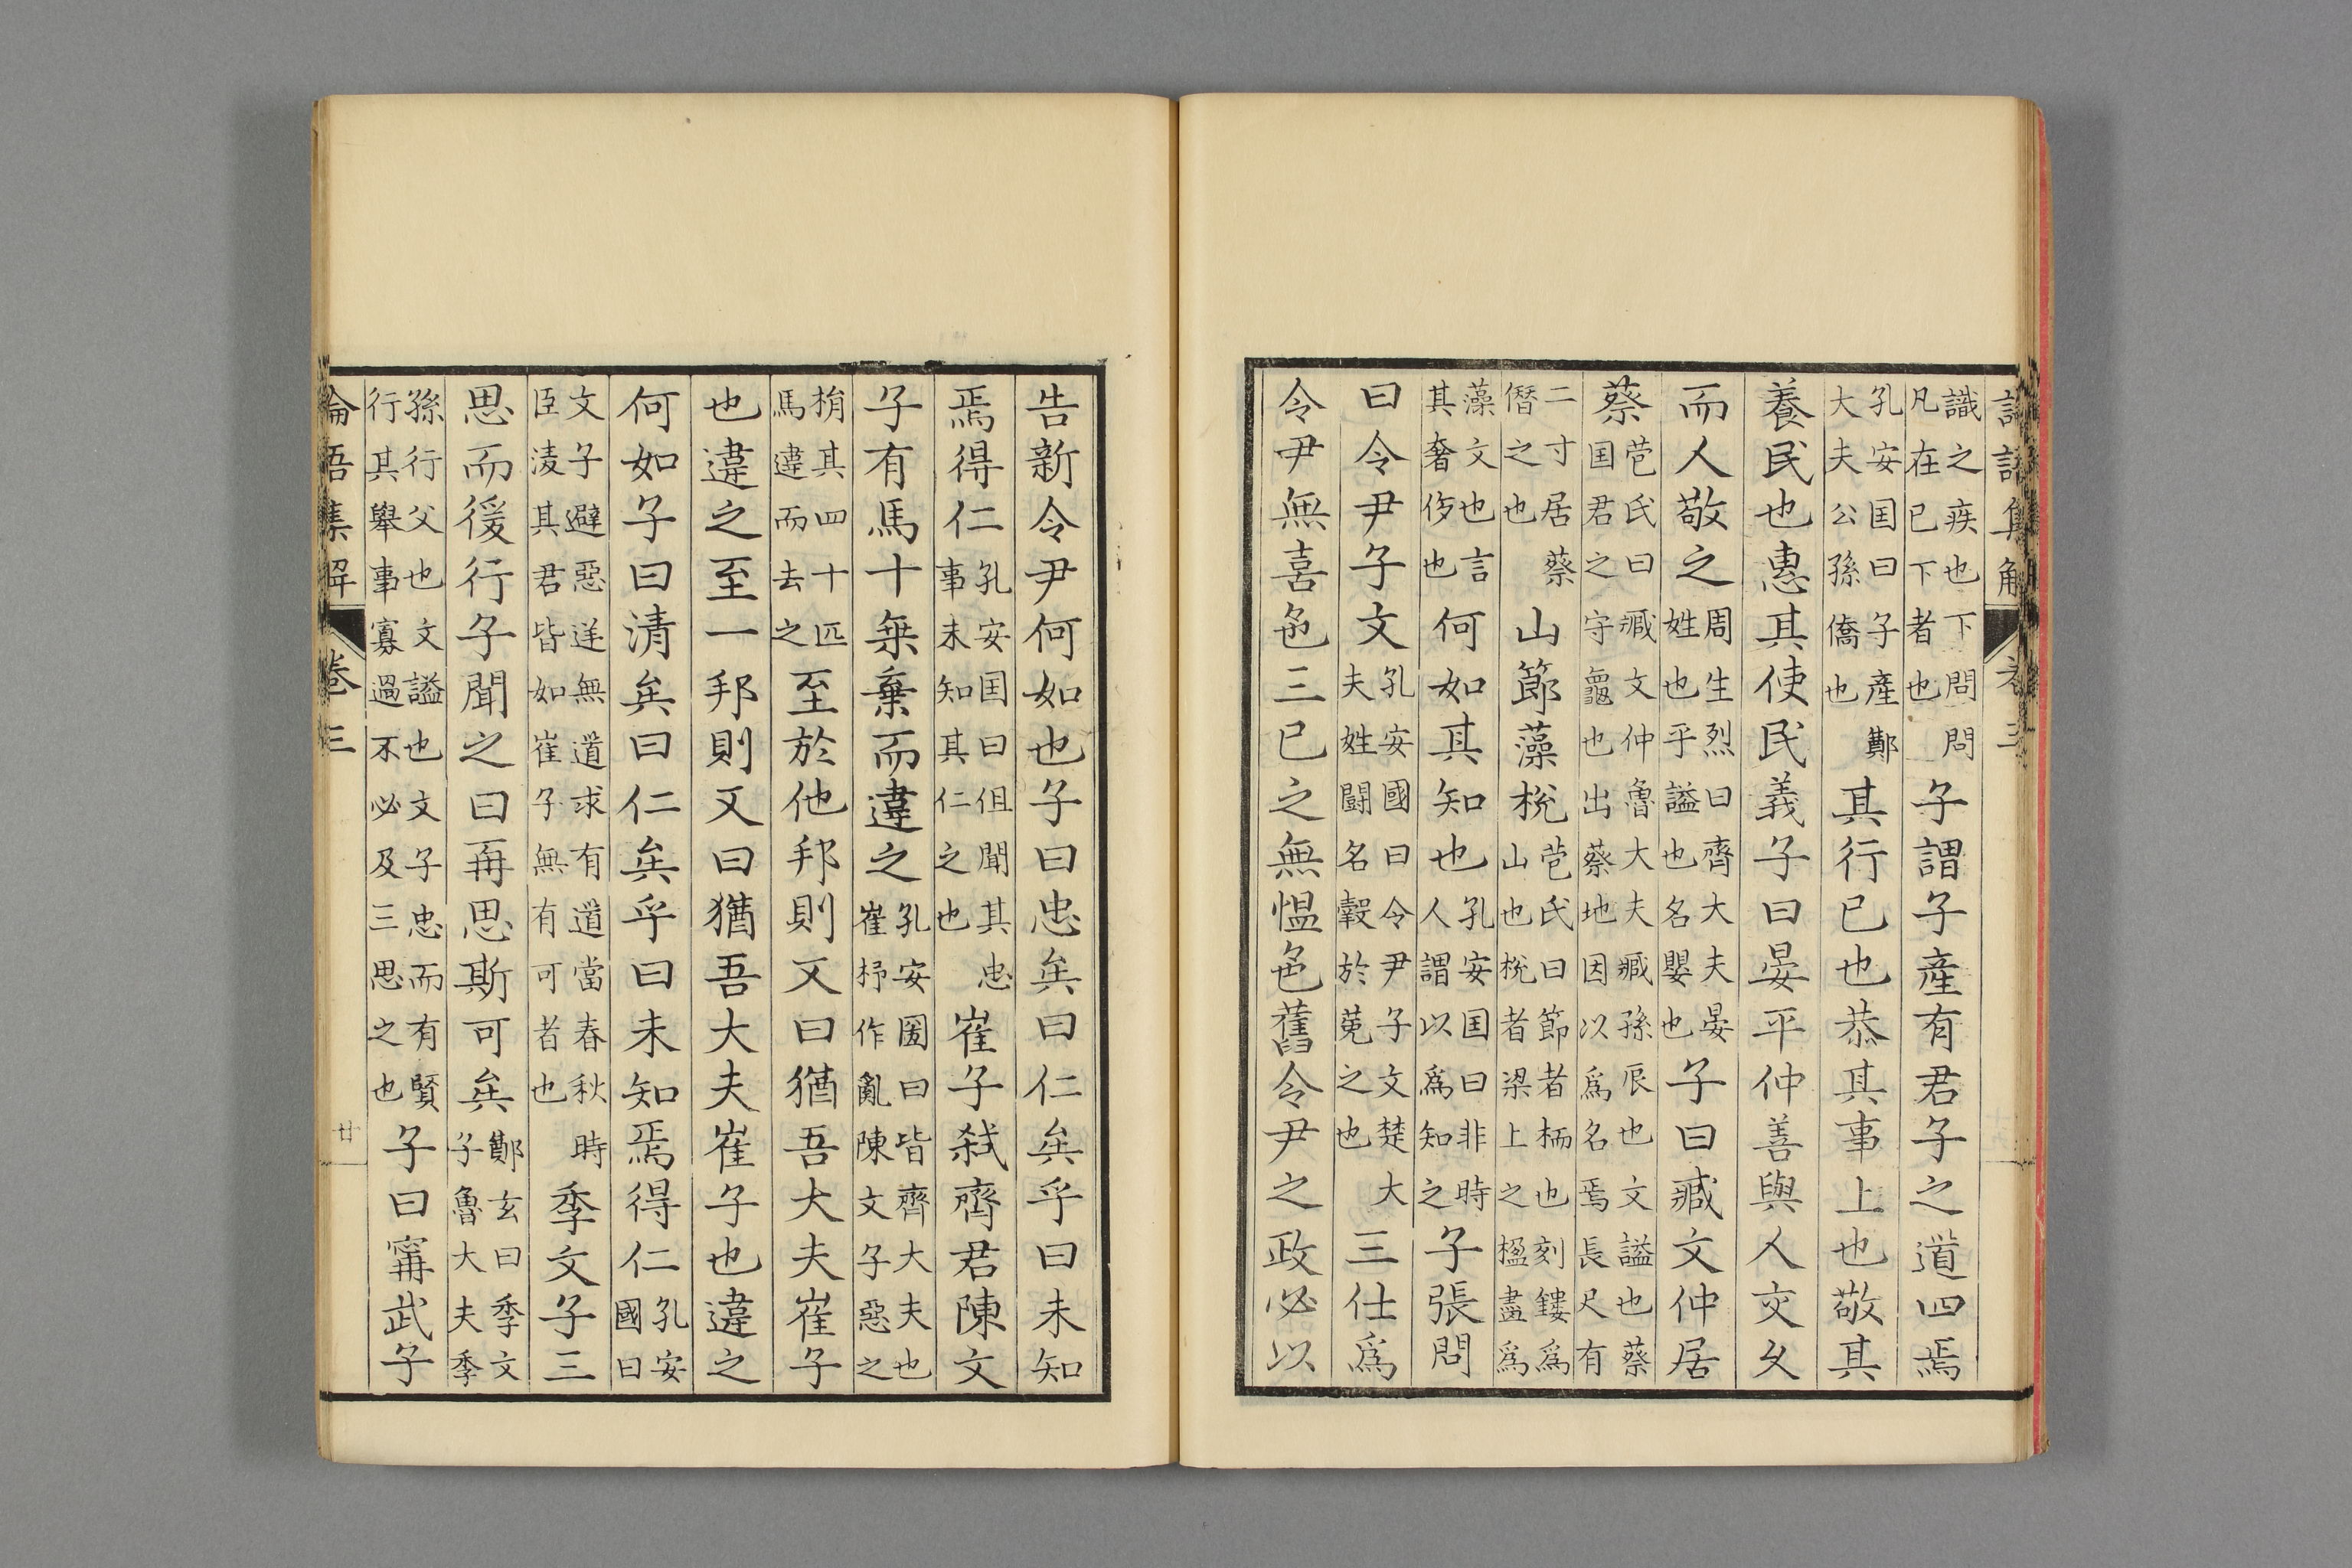 識之疾也下問問凡在已下者也子謂子產有君子之道四焉
孔安囯曰子產鄭大夫公孫僑也其行已也恭其事上也敬其
養民也惠其使民義子曰晏平仲善與人交久
而人敬之周生烈曰齊大夫晏姓也平謚也名嬰也子曰臧文仲居
蔡苞氏曰臧文仲魯大夫臧孫辰也文謚也蔡囯君之守龜也出蔡地因以爲名焉長尺有
二寸居蔡僭之也山節藻梲苞氏曰節者栭也刻鏤爲山也梲者梁上之楹畫爲
藻文也言其奢侈也何如其知也孔安囯曰非時人謂以爲知之子張問
曰令尹子文孔安國曰令尹子文楚大夫姓鬪名穀於菟之也三仕爲
令尹無喜色三已之無愠色舊令尹之政必以
告新令尹何如也子曰忠矣曰仁矣乎曰未知
焉得仁孔安囯曰但聞其忠事未知其仁之也崔子弑齊君陳文
子有馬十乘棄而違之孔安國曰皆齊大夫也崔杼作亂陳文子惡之
捐其四十匹馬違而去之至於他邦則又曰猶吾大夫崔子
也違之至一邦則又曰猶吾大夫崔子也違之
何如子曰清矣曰仁矣乎曰未知焉得仁孔安國曰
文子避惡逆無道求有道當春秋時臣淩其君皆如崔子無有可者也季文子三
思而後行子聞之曰再思斯可矣鄭玄曰季文子魯大夫季
孫行父也文謚也文子忠而有賢行其舉事寡過不必及三思之也子曰甯武子
論語集解 卷三 廿